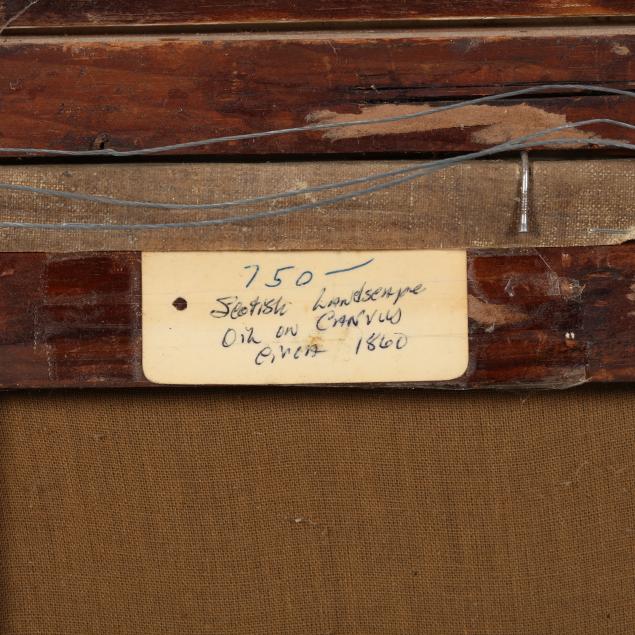 750—
Scotish Landscape
Oil on Canvus
Circa 1860